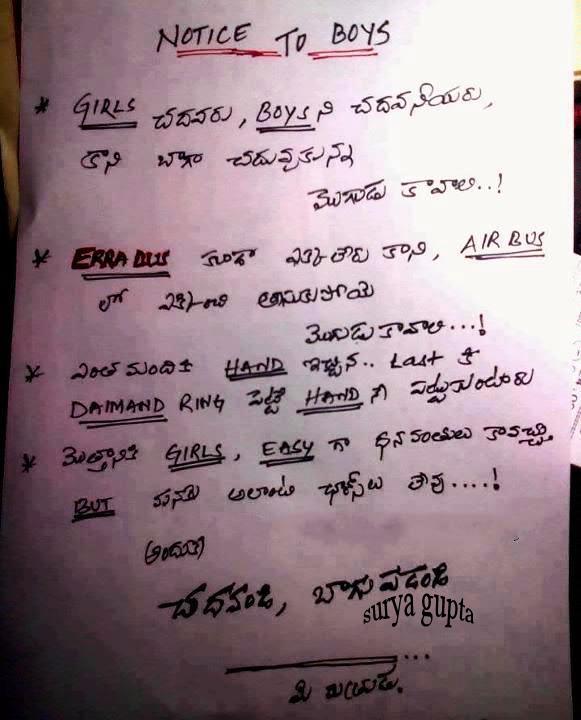 NOTICE TO BOYS
* GIRLS చదవరు, BOYS ని చదవనీయరు,
కాని బాగా చదువుకున్న
మొగుడు కావాలి..!
* ERRA BUS కూడా ఎక్కలేరు కాని, AIR BUS
లో ఎక్కించి తీసుకుపోయే
మొగుడు కావాలి...!
* ఎంత మందికి HAND ఇచ్చిన.. Last కి
DAIMAND RING పెట్టే HAND నే పట్టుకుంటారు
* మొత్తానికి GIRLS, EASY గా ధనవంతులు కావచ్చు
BUT మనకు అలాంటి ఛాన్స్‌లు లేవు....!
అందుకే
చదవండి, బాగుపడండి
surya gupta
...
మీ